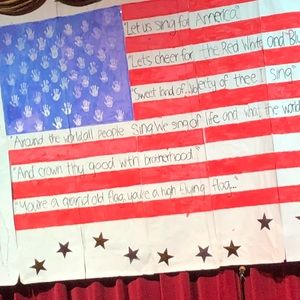 "Let us sing for America"
"Let's cheer for the Red White and "Blu
"Sweet land of... Liberty of thee I sing"
Around the world all people sing We sing of life and what the world
"And crown thy good with brotherhood."
"You're a grand old flag, you're a high flying flag..."